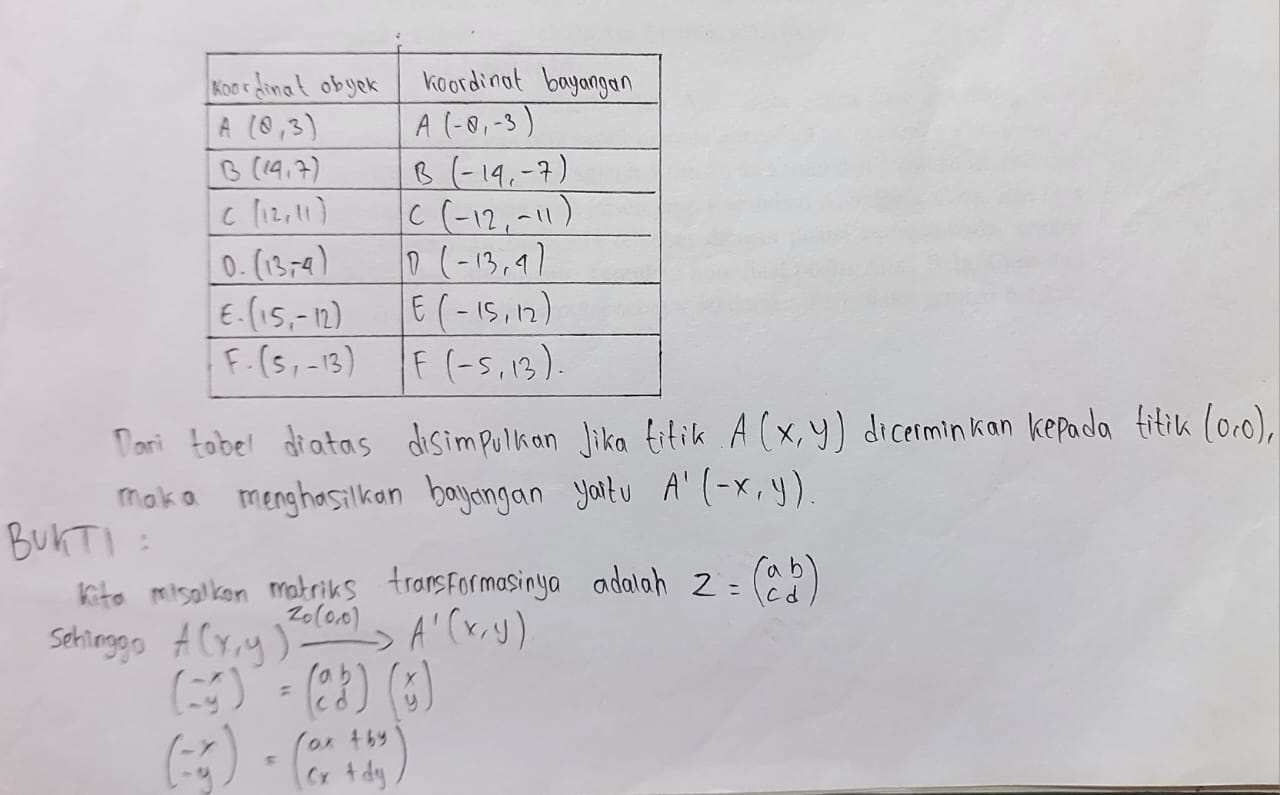 Koordinat obyek koordinat bayangan
A (0,3) A (-0,-3)
B (14,7) B (-14,-7)
C (12,11) C (-12,-11)
D. (13,-4) D (-13,4)
E. (15,-12) E (-15,12)
F. (5,-13) F (-5,13).
Dari tabel diatas disimpulkan Jika titik A (x,y) dicerminkan kepada titik (0,0),
maka menghasilkan bayangan yaitu A' (-x, y).
BUKTI :
Kita misalkan matriks transformasinya adalah Z = (a b
c d)
Zo(0,0)
Sehingga A(x,y) → A' (x,y)
(-x
-y) = (a b
c d) (x
y)
(-x
-y) = (ax + by
cx + dy)